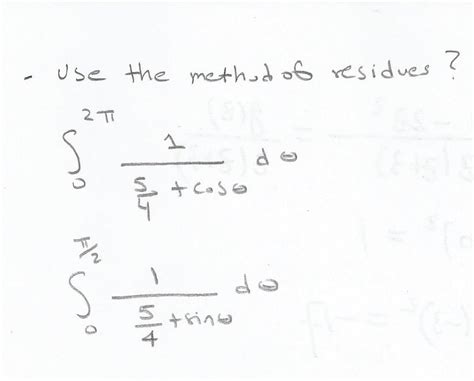 - Use the method of residues ?
∫_0^{2π} 1 / (5/4 + cosθ) dθ
∫_0^{π/2} 1 / (5/4 + sinθ) dθ